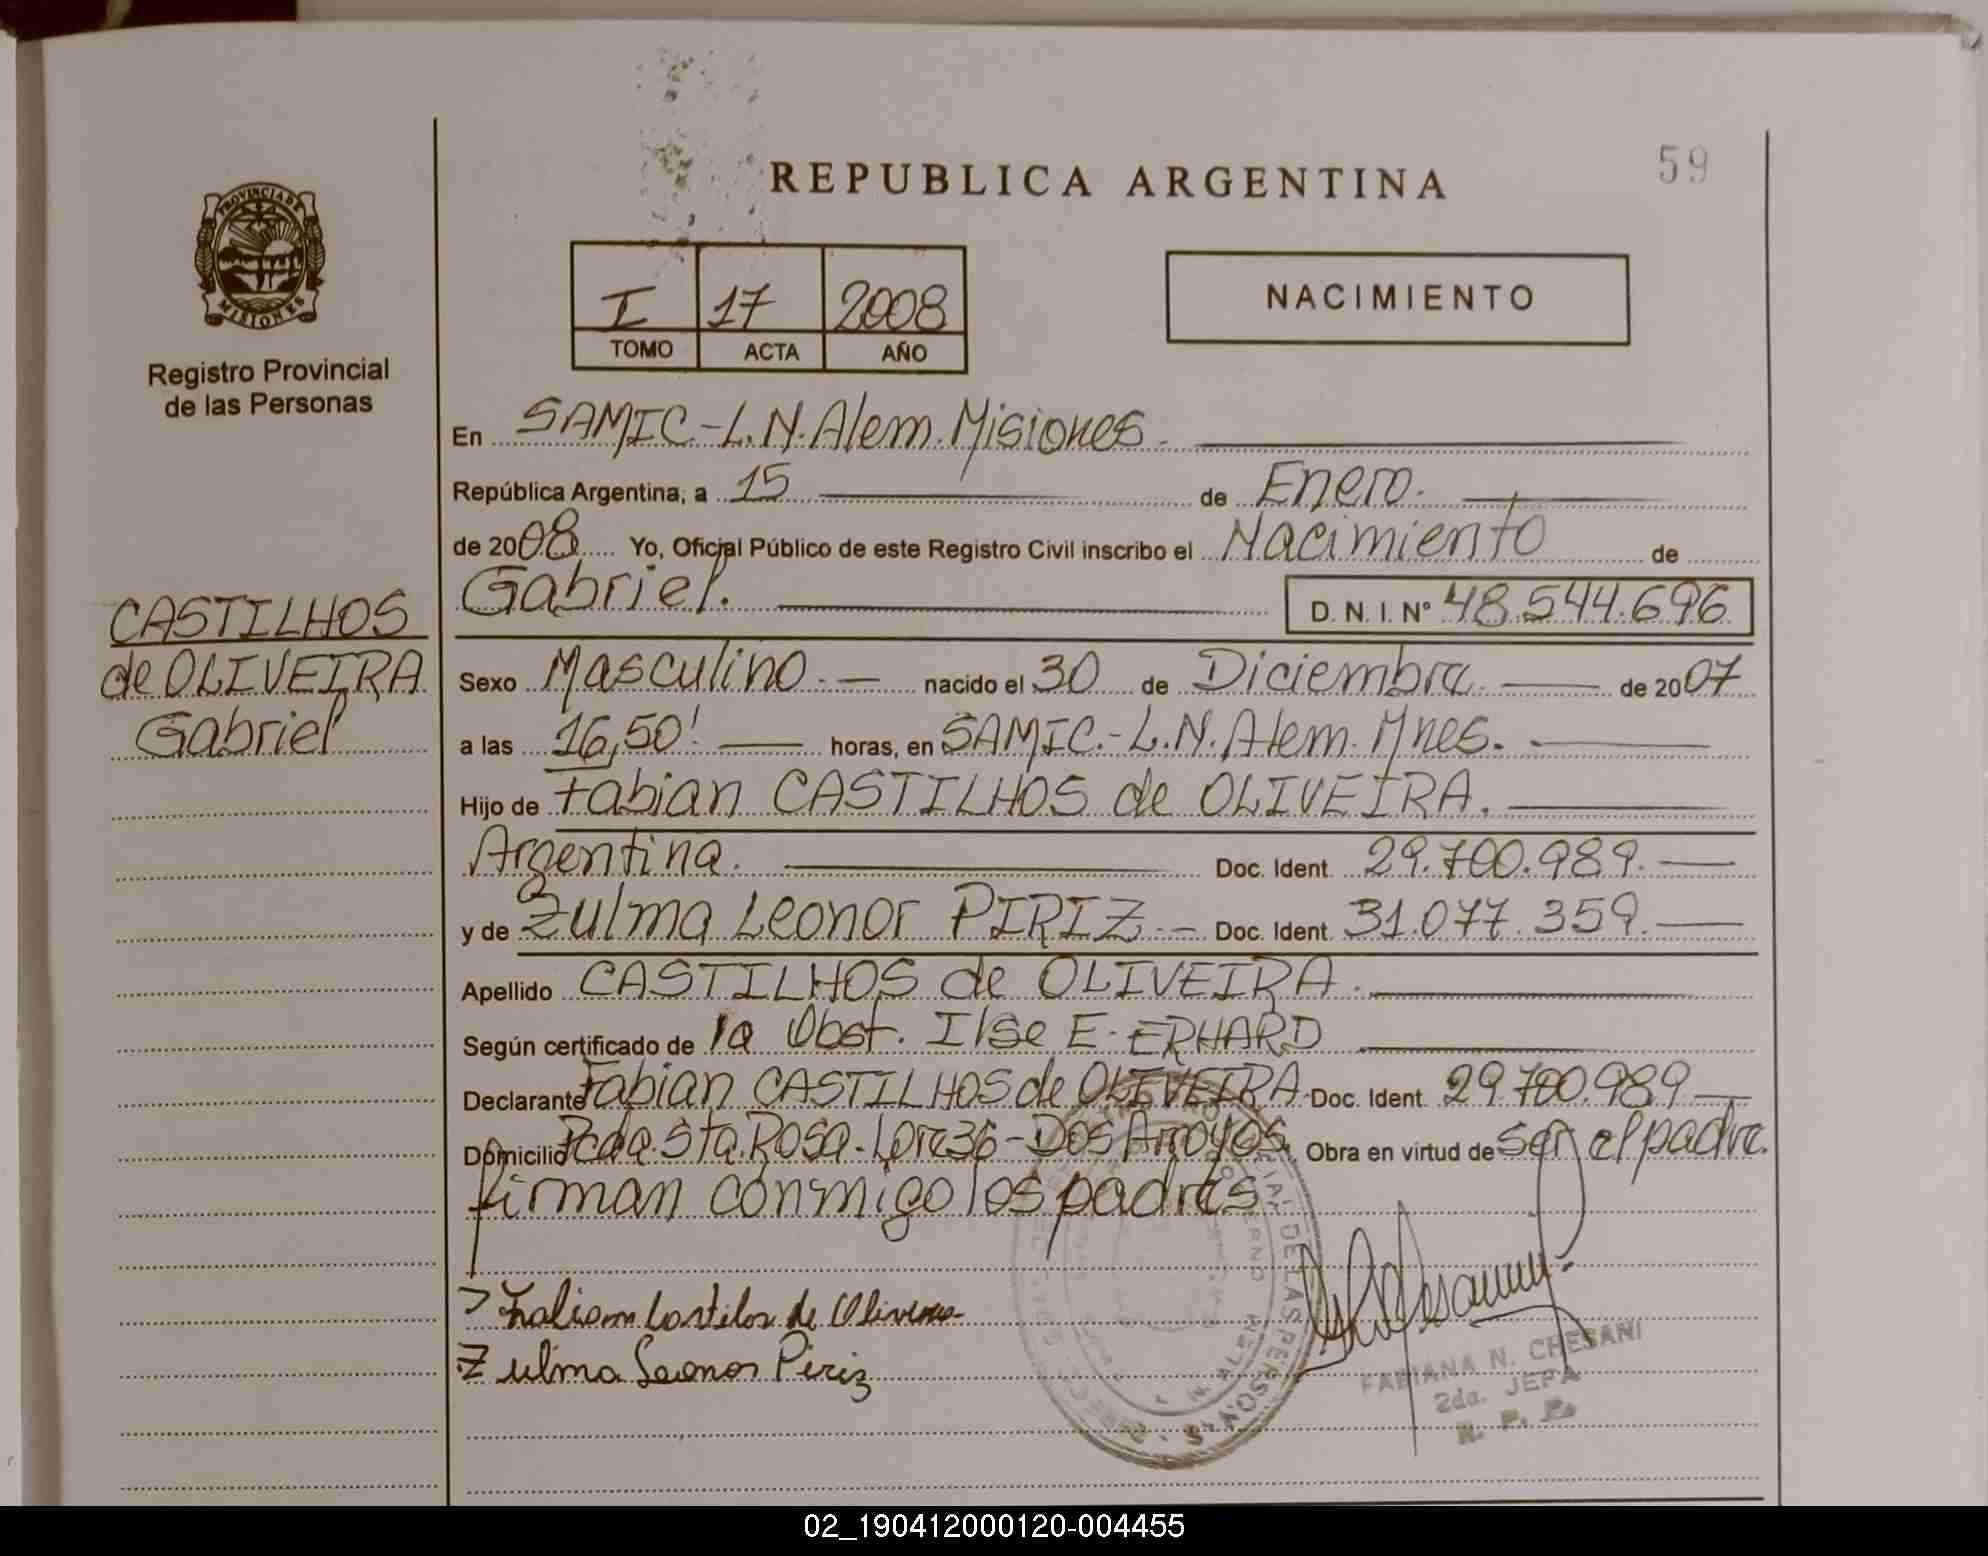 59
REPUBLICA ARGENTINA
PROVINCIA DE
MISIONES
I 17 2008
TOMO ACTA AÑO
NACIMIENTO
Registro Provincial
de las Personas
En SAMIC-L.N.Alem.Misiones.
República Argentina, a 15 de Enero.
de 2008 Yo, Oficial Público de este Registro Civil inscribo el Nacimiento de
Gabriel. D. N. I. N° 48.544.696
CASTILHOS
de OLIVEIRA
Gabriel
Sexo Masculino.- nacido el 30 de Diciembre. de 2007
a las 16,50' horas, en SAMIC.-L.N.Alem.Mnes.
Hijo de Fabian CASTILHOS de OLIVEIRA.
Argentina. Doc. Ident. 29.700.989.
y de Zulma Leonor PIRIZ.- Doc. Ident. 31.077.359.
Apellido CASTILHOS de OLIVEIRA.
Según certificado de la Obst. Ilse E. ERHARD
Declarante Fabian CASTILHOS de OLIVEIRA. Doc. Ident. 29.700.989
Domicilio Pcda.Sta.Rosa-Lote36-Dos Arroyos. Obra en virtud de ser el padre.
firman conmigo los padres
Fabian Castilos de Olivera
Zulma Leonor Piriz
DE LAS PERSONAS
FABIANA N. CHESANI
2da. JEFA
R. P. P.
02_190412000120-004455